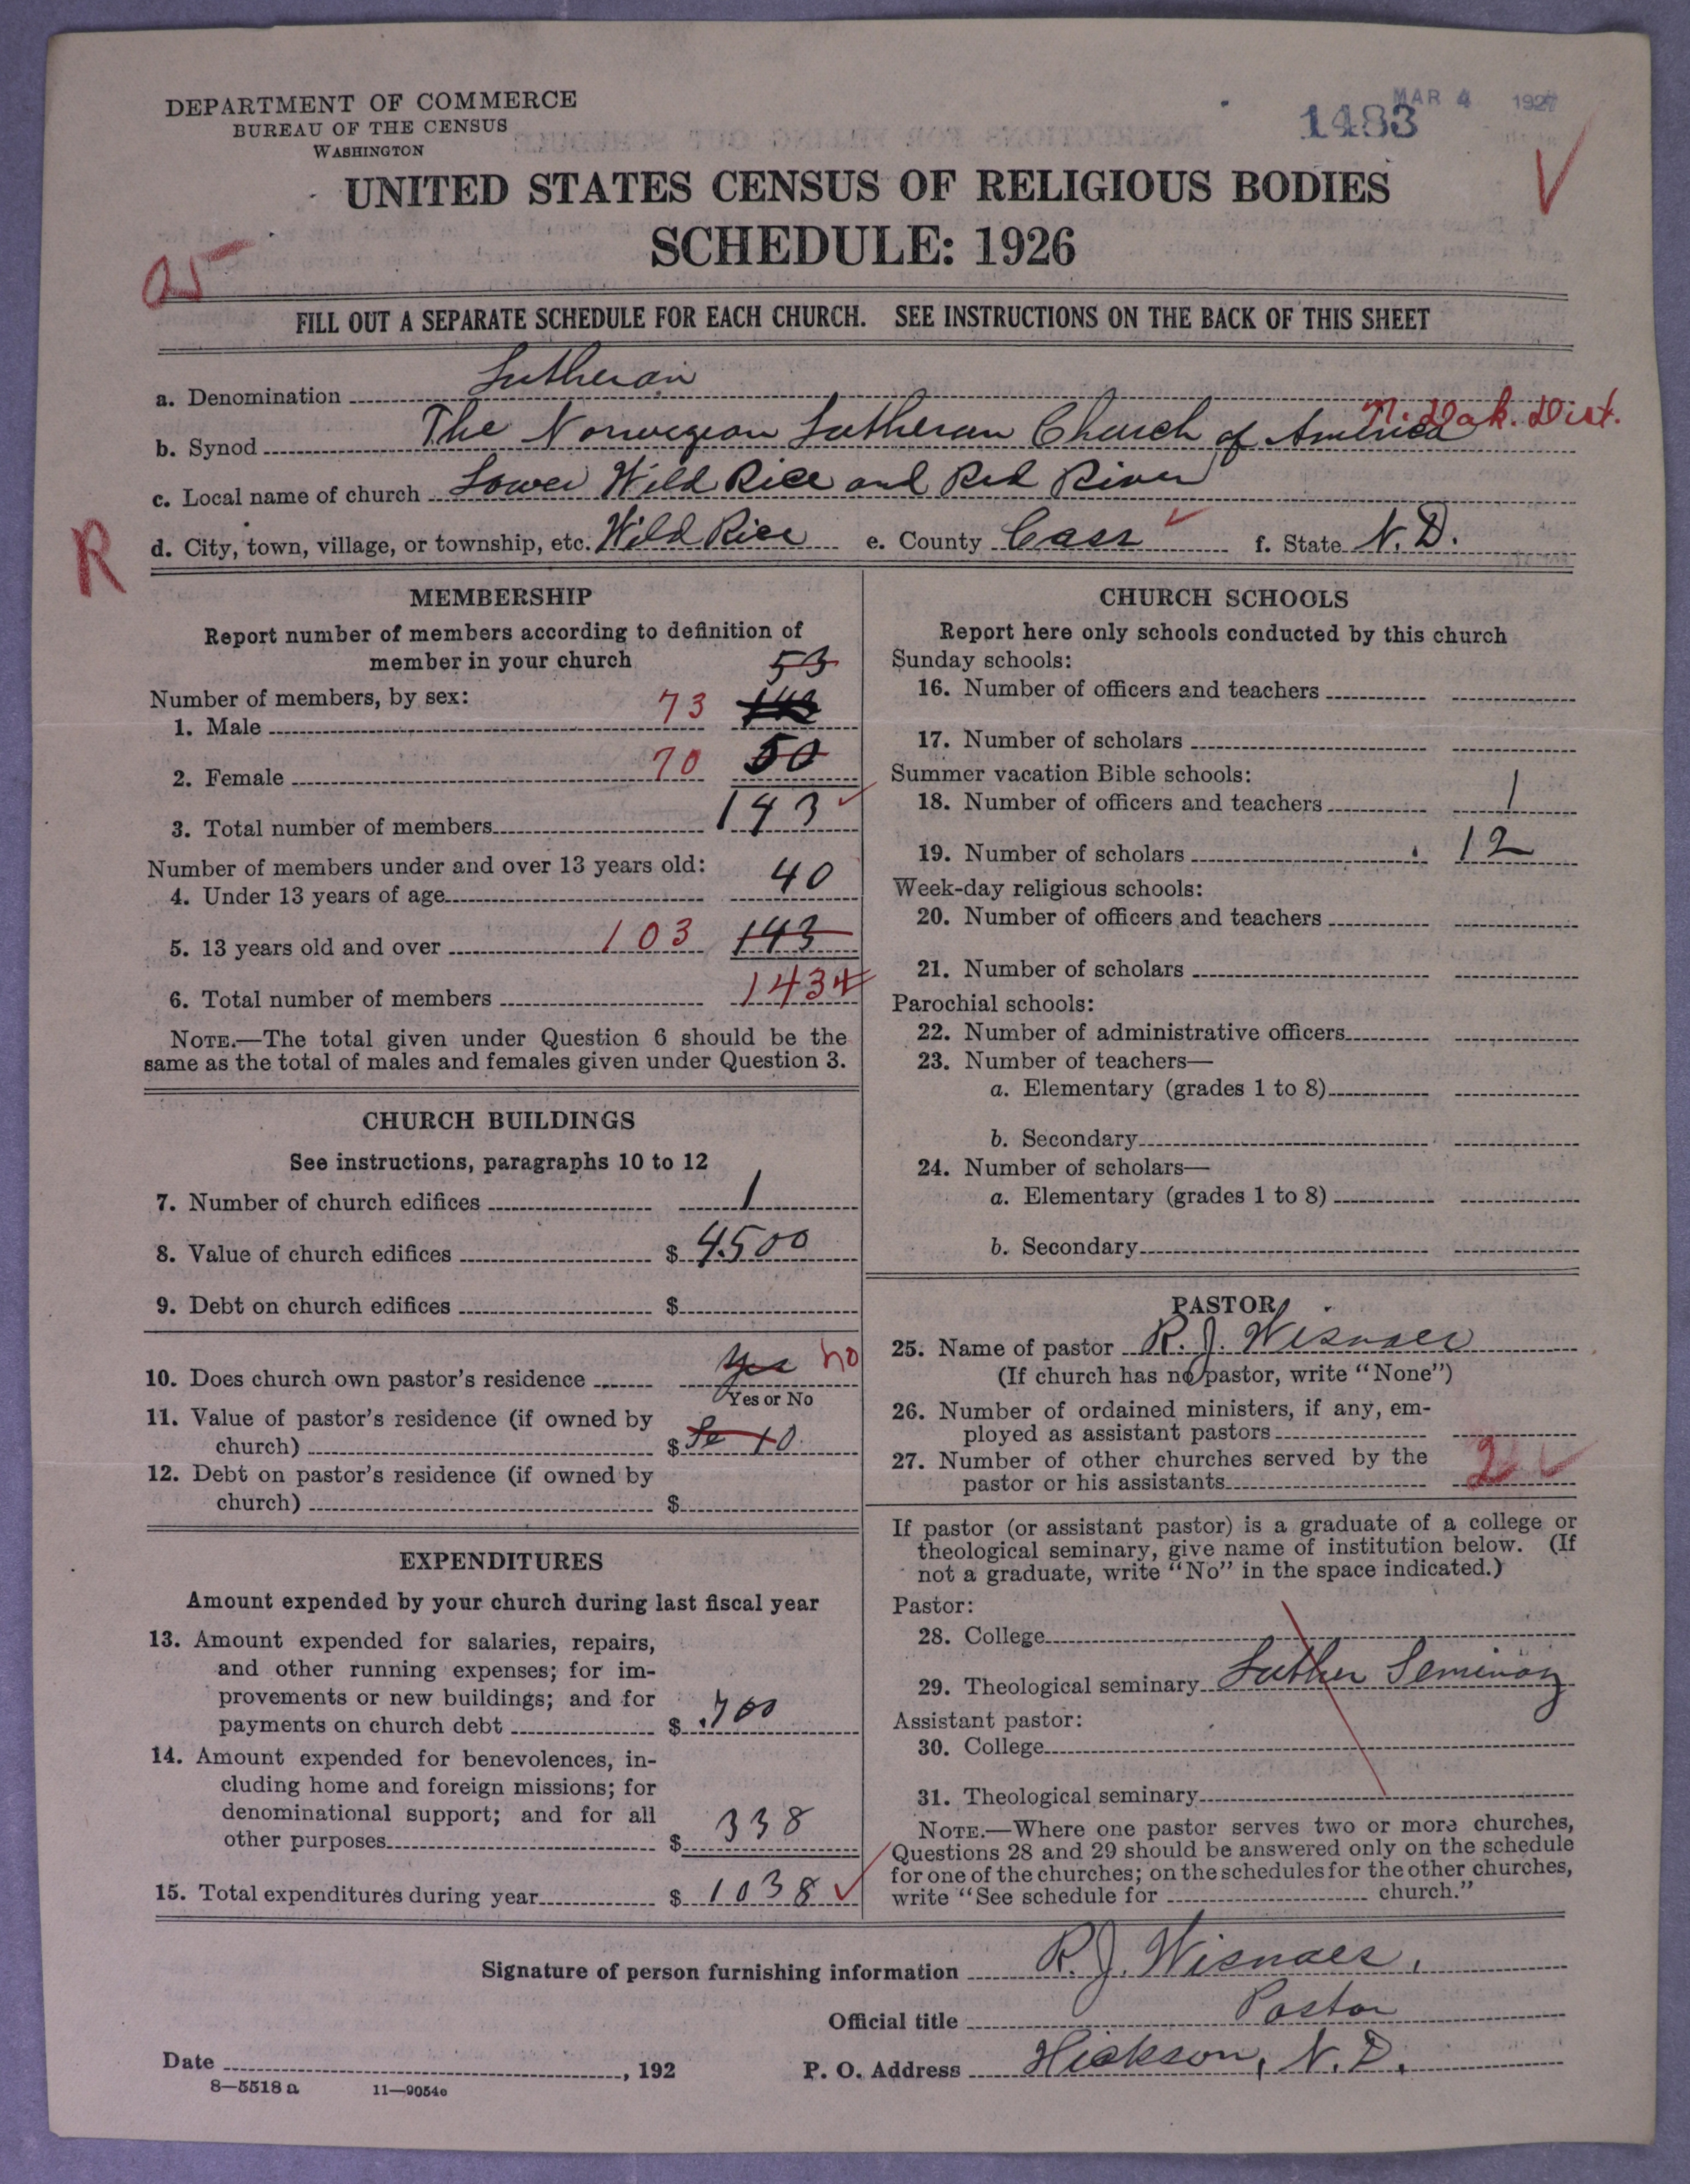 DEPARTMENT OF COMMERCE
BUREAU OF THE CENSUS
WASHINGTON
MAR 4 1927
1483
UNITED STATES CENSUS OF RELIGIOUS BODIES
SCHEDULE: 1926
FILL OUT A SEPARATE SCHEDULE FOR EACH CHURCH. SEE INSTRUCTIONS ON THE BACK OF THIS SHEET
a. Denomination Lutheran
b. Synod The Norwegian Lutheran Church of America N. Dak. Dist.
c. Local name of church Lower Wild Rice and Red River
R
d. City, town, village, or township, etc. Wild Rice e. County Cass f. State N. D.
MEMBERSHIP
Report number of members according to definition of
member in your church
53
Number of members, by sex:
1. Male 73
2. Female 70 50
3. Total number of members 143
Number of members under and over 13 years old:
4. Under 13 years of age 40
5. 13 years old and over 103 143
6. Total number of members 143
NOTE.—The total given under Question 6 should be the
same as the total of males and females given under Question 3.
CHURCH BUILDINGS
See instructions, paragraphs 10 to 12
7. Number of church edifices 1
8. Value of church edifices $ 4500
9. Debt on church edifices $
10. Does church own pastor's residence yes no
Yes or No
11. Value of pastor's residence (if owned by
church) $
12. Debt on pastor's residence (if owned by
church) $
EXPENDITURES
Amount expended by your church during last fiscal year
13. Amount expended for salaries, repairs,
and other running expenses; for im-
provements or new buildings; and for
payments on church debt $ 700
14. Amount expended for benevolences, in-
cluding home and foreign missions; for
denominational support; and for all
other purposes $ 338
15. Total expenditures during year $ 1038
CHURCH SCHOOLS
Report here only schools conducted by this church
Sunday schools:
16. Number of officers and teachers
17. Number of scholars
Summer vacation Bible schools:
18. Number of officers and teachers 1
19. Number of scholars 12
Week-day religious schools:
20. Number of officers and teachers
21. Number of scholars
Parochial schools:
22. Number of administrative officers
23. Number of teachers—
a. Elementary (grades 1 to 8)
b. Secondary
24. Number of scholars—
a. Elementary (grades 1 to 8)
b. Secondary
PASTOR
25. Name of pastor R. J. Wisnaes
(If church has no pastor, write "None")
26. Number of ordained ministers, if any, em-
ployed as assistant pastors
27. Number of other churches served by the
pastor or his assistants 2
If pastor (or assistant pastor) is a graduate of a college or
theological seminary, give name of institution below. (If
not a graduate, write "No" in the space indicated.)
Pastor:
28. College
29. Theological seminary Luther Seminary
Assistant pastor:
30. College
31. Theological seminary
NOTE.—Where one pastor serves two or more churches,
Questions 28 and 29 should be answered only on the schedule
for one of the churches; on the schedules for the other churches,
write "See schedule for church."
Signature of person furnishing information R. J. Wisnaes,
Official title Pastor
Date , 192 P. O. Address Hickson, N. D.
8—5518 a 11—9054e